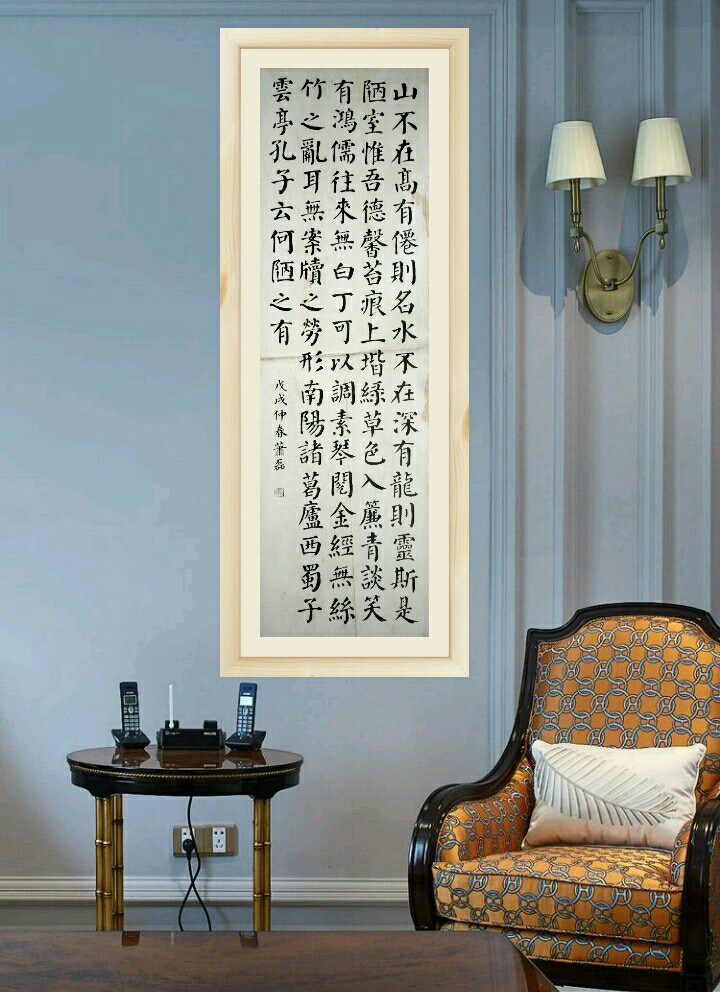 山不在髙有僊則名水不在深有龍則靈斯是
陋室惟吾德馨苔痕上堦緑草色入簾青談笑
有鴻儒往來無白丁可以調素琴閲金經無絲
竹之亂耳無案牘之勞形南陽諸葛廬西蜀子
雲亭孔子云何陋之有
戊戌仲春蕭磊